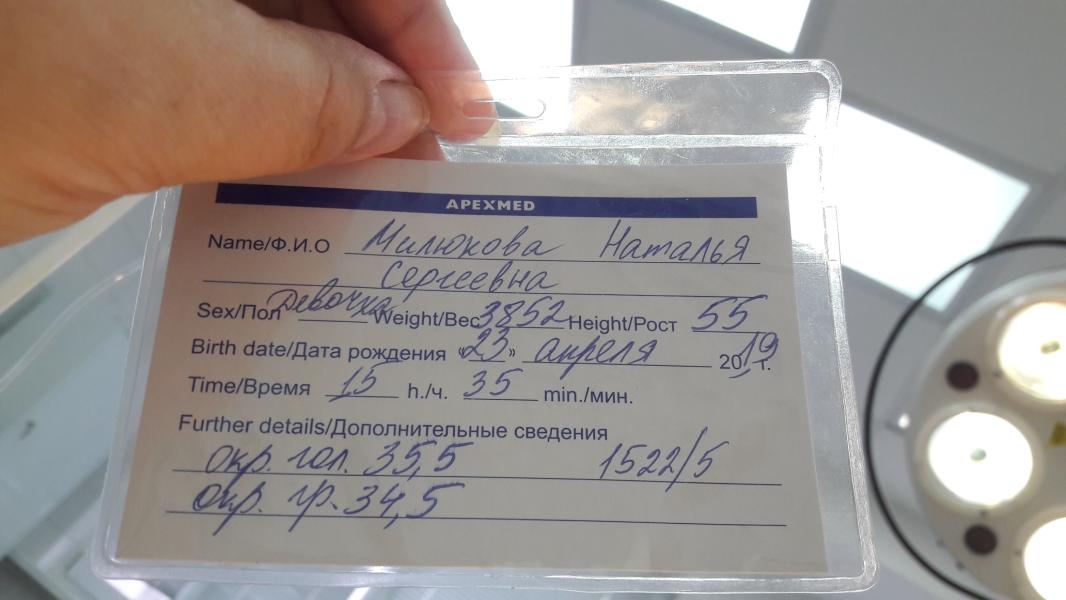 APEXMED
Name/Ф.И.О Милюкова Наталья
Сергеевна
Sex/Пол Девочка Weight/Вес 3852 Height/Рост 55
Birth date/Дата рождения «23» апреля 2019 г.
Time/Время 15 h./ч. 35 min./мин.
Further details/Дополнительные сведения
окр. гол. 35,5 1522/5
окр. гр. 34,5